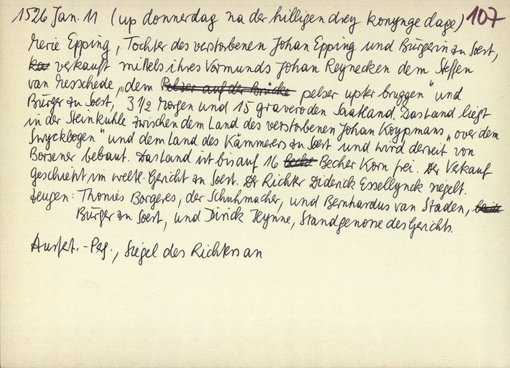 1526 Jan. 11 (up donnerdag na der hilligen drey konynge dage) 107
Merie Epping, Tochter des verstorbenen Johan Epping und Bürgerin zu Soest,
verkauft mittels ihres Vormunds Johan Reynecken dem Steffen
van Messchede, "dem Pelser auf der Brücke pelser upter bruggen" und
Bürger zu Soest, 3 1/2 Morgen und 15 graveroden Saatland. Das Land liegt
in der Steinkuhle zwischen dem Land des verstorbenen Johan Koypmans, "over dem
Swyckbogen" und dem Land des Kämmerers zu Soest und wird derzeit von
Borsener bebaut. Das Land ist bis auf 16 Becher Korn frei. Der Verkauf
geschieht im weltl. Gericht zu Soest. Der Richter Diderick Essellynck siegelt.
Zeugen: Thonies Borgeres, der Schuhmacher, und Bernhardus van Staden, beide
Bürger zu Soest, und Dirick Heynne, Standgenosse des Gerichts.
Ausfert. - Perg., Siegel des Richters an